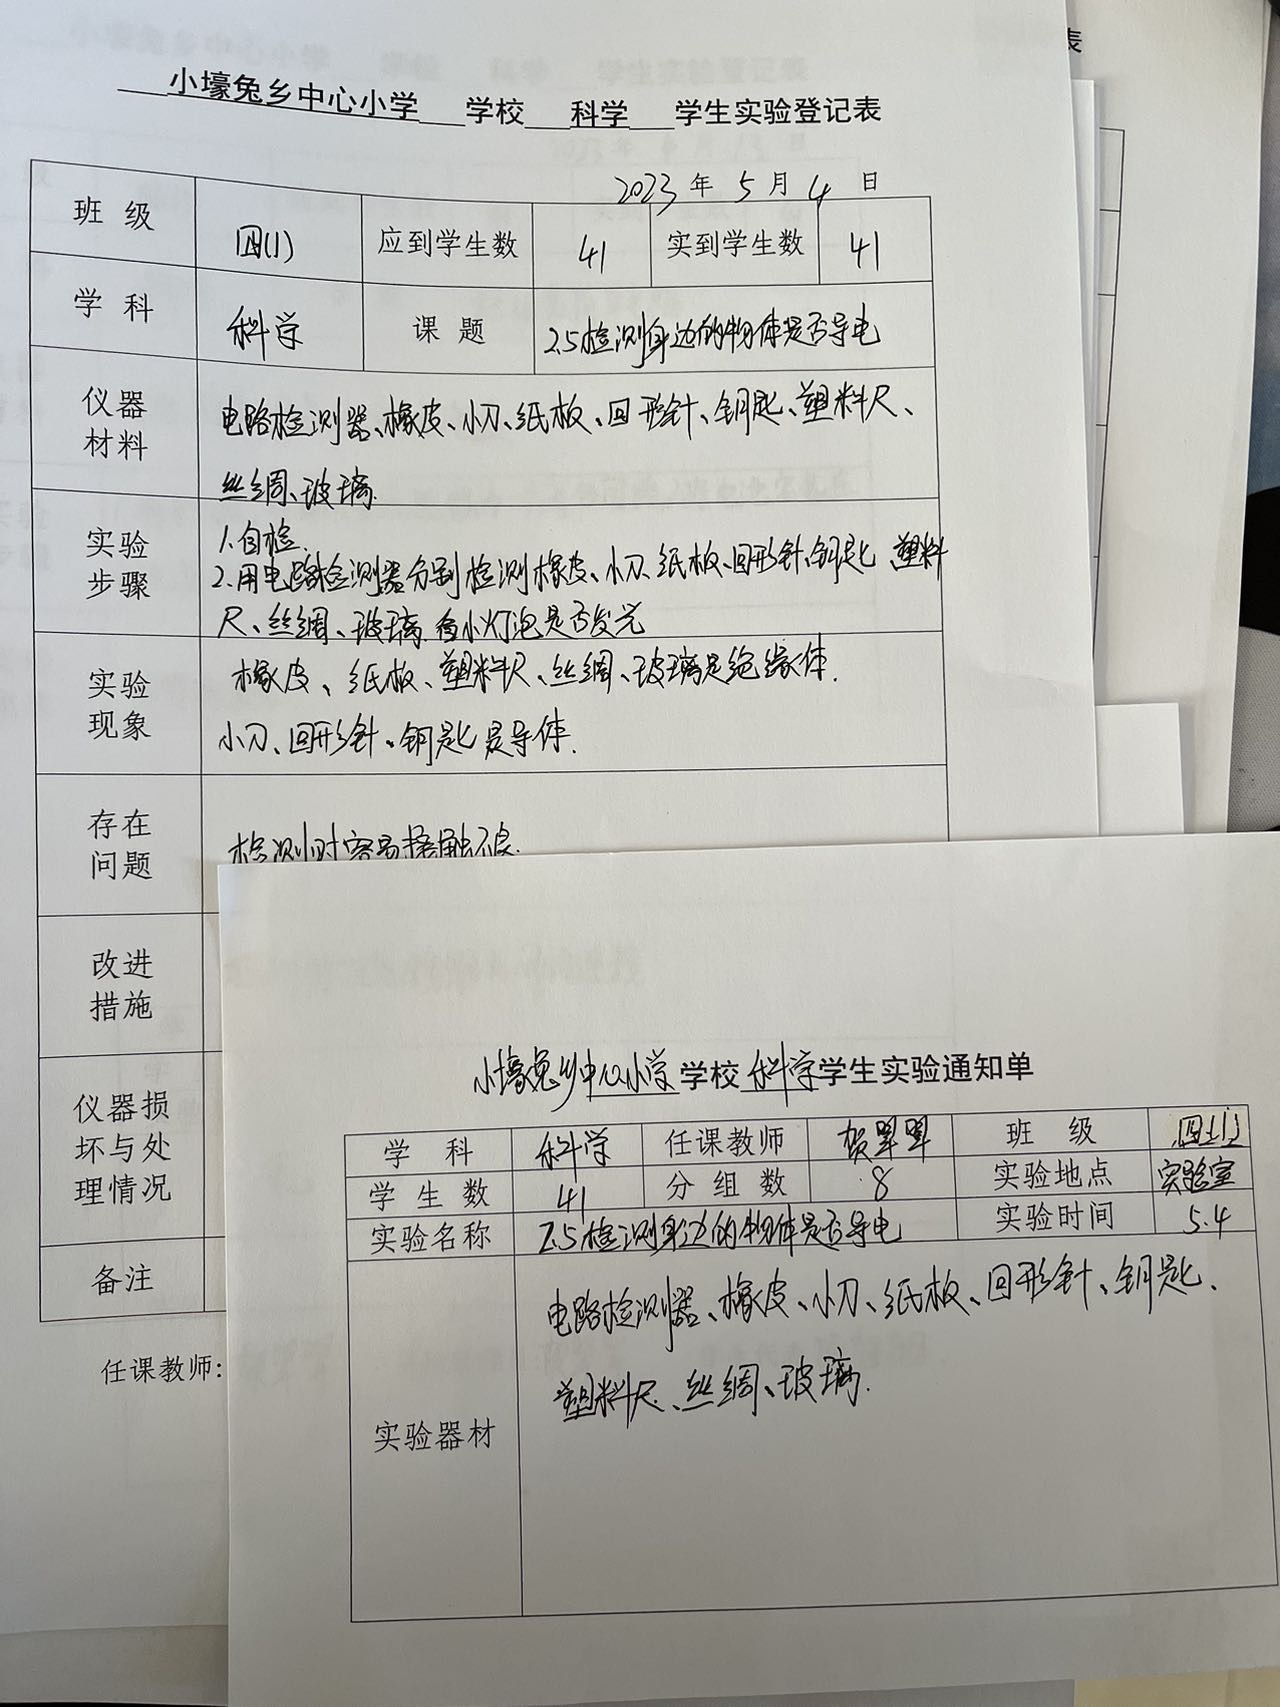 小壕兔乡中心小学 学校 科学 学生实验登记表
2023年5月4日
班级 四(1) 应到学生数 41 实到学生数 41
学科 科学 课题 2.5检测身边的物体是否导电
仪器材料 电路检测器、橡皮、小刀、纸板、回形针、钥匙、塑料尺、
丝绸、玻璃.
实验步骤 1.自检.
2.用电路检测器分别检测橡皮、小刀、纸板、回形针、钥匙、塑料
尺、丝绸、玻璃.看小灯泡是否发光
实验现象 橡皮、纸板、塑料尺、丝绸、玻璃是绝缘体.
小刀、回形针、钥匙是导体.
存在问题 检测时容易接触不良.
改进措施
仪器损坏与处理情况
备注
任课教师:
表
小壕兔乡中心小学学校科学学生实验通知单
学科 科学 任课教师 贺翠翠 班级 四(1)
学生数 41 分组数 8 实验地点 实验室
实验名称 2.5检测身边的物体是否导电 实验时间 5.4
实验器材 电路检测器、橡皮、小刀、纸板、回形针、钥匙、
塑料尺、丝绸、玻璃.